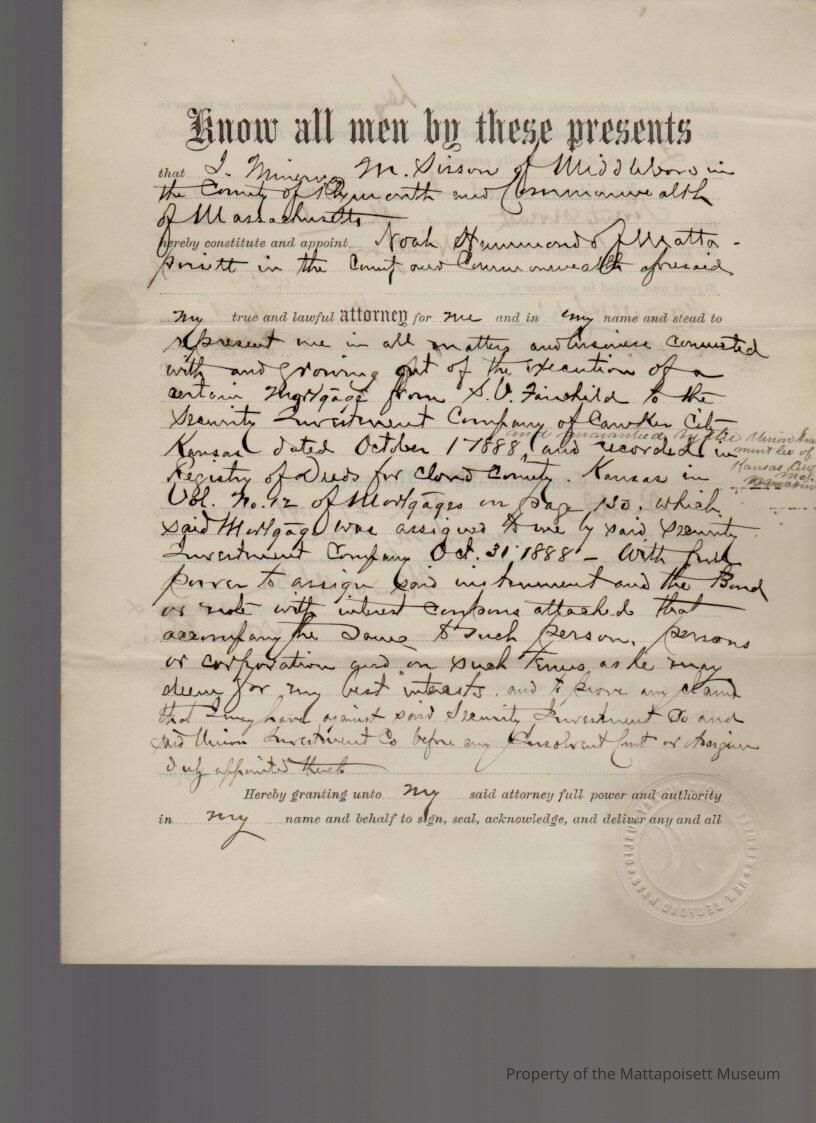 Know all men by these presents
that I. Minerva M. Sisson of Middleboro in
the County of Plymouth and Commonwealth
of Massachusetts
hereby constitute and appoint Noah Hammond of Matta-
poisett in the County and Commonwealth aforesaid
my true and lawful attorney for me and in my name and stead to
represent me in all matters and business connected
with and growing out of the execution of a
certain Mortgage from S.V. Fairchild to the
Security Investment Company of Cawker City
and guaranteed by the Union Invest
ment Co of
Kansas City
Mo.
Kansas dated October 1 1888, and recorded in
Registry of Deeds for Cloud County. Kansas in
Vol. No. 12 of Mortgages on page 130. which
said Mortgage was assigned to me by said Security
Investment Company Oct. 31 1888 - With full
power to assign said instrument and the Bond
or note with interest coupons attached that
accompany the same to such person, persons
or corporation and on such terms as he may
deem for my best interests, and to prove any claim
that I may have against said Security Investment Co and
said Union Investment Co before any Insolvent Court or Assignee
duly appointed thereto
Hereby granting unto my said attorney full power and authority
in my name and behalf to sign, seal, acknowledge, and deliver any and all
Property of the Mattapoisett Museum